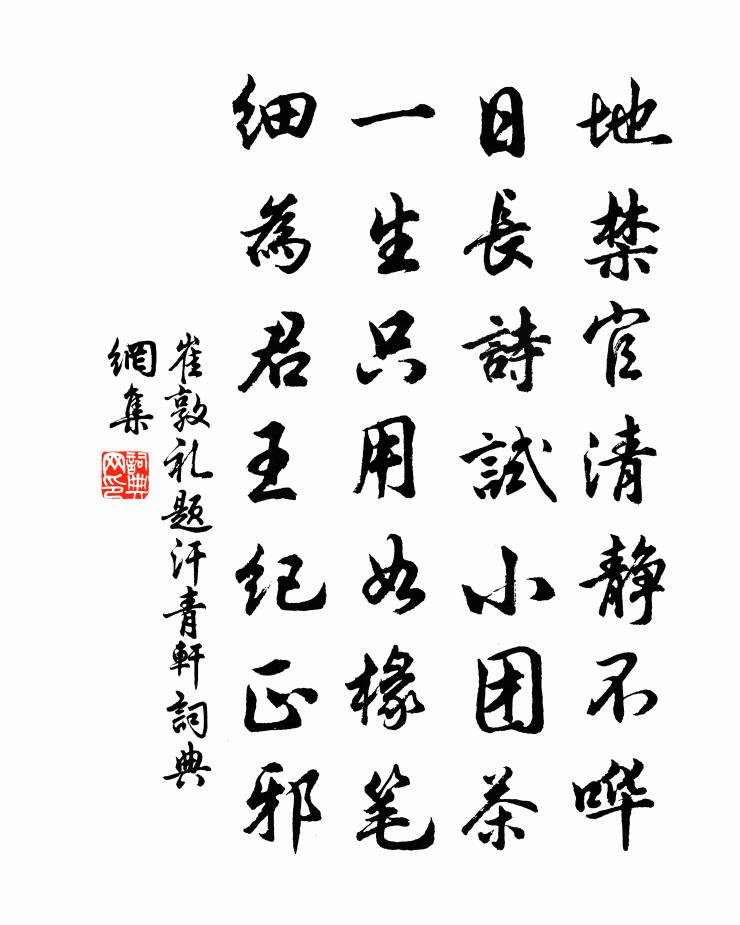 地禁官清静不哗
日長詩試小团茶
一生只用如椽笔
细為君王纪正邪
崔敦礼题汗青軒詞典
網集
詞典
网印